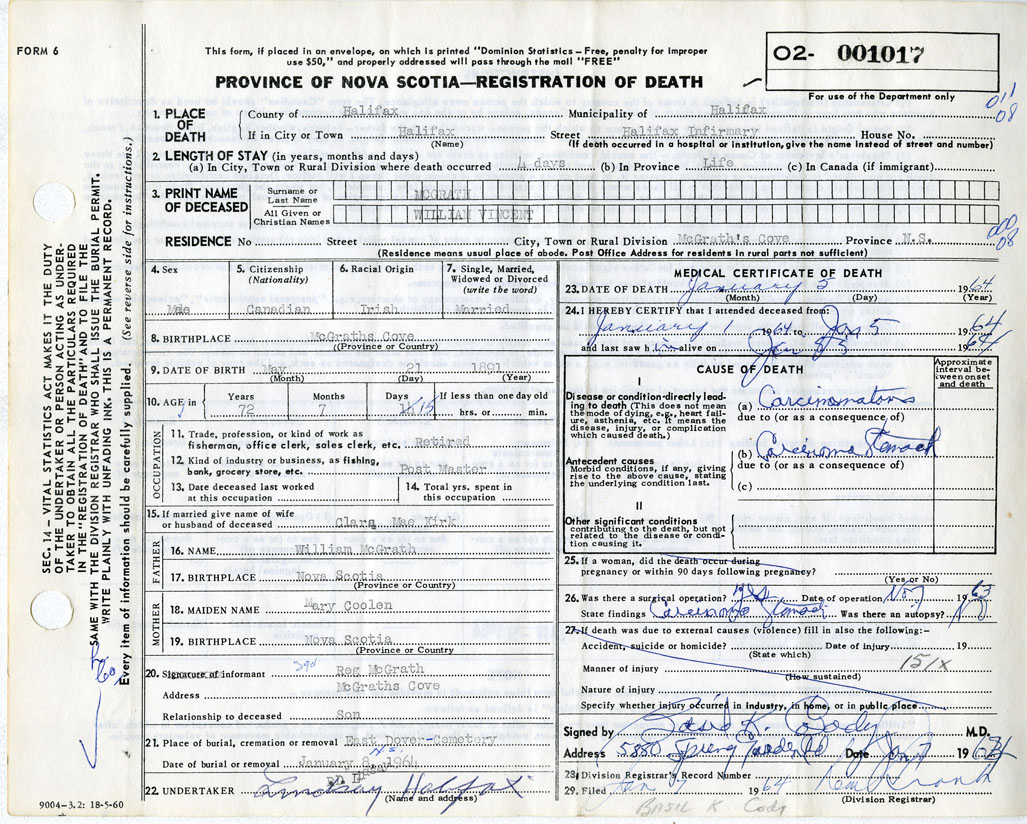 FORM 6
This form, if placed in an envelope, on which is printed "Dominion Statistics – Free, penalty for improper
use $50," and properly addressed will pass through the mail "FREE"
PROVINCE OF NOVA SCOTIA—REGISTRATION OF DEATH
O2- 001017
For use of the Department only
011
08
1. PLACE OF DEATH
County of Halifax Municipality of Halifax
If in City or Town Halifax Street Halifax Infirmary House No.
(Name) (If death occurred in a hospital or institution, give the name instead of street and number)
2. LENGTH OF STAY (in years, months and days)
(a) In City, Town or Rural Division where death occurred 4 days (b) In Province Life (c) In Canada (if immigrant)
3. PRINT NAME OF DECEASED
Surname or Last Name MCGRATH
All Given or Christian Names WILLIAM VINCENT
08
RESIDENCE No Street City, Town or Rural Division McGrath's Cove Province N.S.
(Residence means usual place of abode. Post Office Address for residents in rural parts not sufficient)
4. Sex
Male
5. Citizenship
(Nationality)
Canadian
6. Racial Origin
Irish
7. Single, Married,
Widowed or Divorced
(write the word)
Married
8. BIRTHPLACE McGraths Cove
(Province or Country)
9. DATE OF BIRTH May 21 1891
(Month) (Day) (Year)
10. AGE in
Years
72
Months
7
Days
15
If less than one day old
hrs. or min.
OCCUPATION
11. Trade, profession, or kind of work as
fisherman, office clerk, sales clerk, etc. Retired
12. Kind of industry or business, as fishing,
bank, grocery store, etc. Post Master
13. Date deceased last worked
at this occupation
14. Total yrs. spent in
this occupation
15. If married give name of wife
or husband of deceased Clara Mae Kirk
FATHER
16. NAME William McGrath
17. BIRTHPLACE Nova Scotia
(Province or Country)
MOTHER
18. MAIDEN NAME Mary Coolen
19. BIRTHPLACE Nova Scotia
(Province or Country)
20. Signature of informant Sgd Reg McGrath
Address McGraths Cove
Relationship to deceased Son
21. Place of burial, cremation or removal East Dover--Cemetery
N.S.
Date of burial or removal January 8, 1964
22 UNDERTAKER Lindsay Halifax
(Name and address)
MEDICAL CERTIFICATE OF DEATH
23. DATE OF DEATH January 5 1964
(Month) (Day) (Year)
24. I HEREBY CERTIFY that I attended deceased from:
January 1 1964 to Jan 5 1964
and last saw him alive on Jan 5 1964
CAUSE OF DEATH
Approximate interval between onset and death
I
Disease or condition directly leading to death (This does not mean the mode of dying, e.g., heart failure, asthenia, etc. It means the disease, injury, or complication which caused death.)
(a) Carcinomatous
due to (or as a consequence of)
Antecedent causes
Morbid conditions, if any, giving rise to the above cause, stating the underlying condition last.
(b) Carcinoma Stomach
due to (or as a consequence of)
(c)
II
Other significant conditions
contributing to the death, but not related to the disease or condition causing it.
25. If a woman, did the death occur during
pregnancy or within 90 days following pregnancy?
(Yes or No)
26. Was there a surgical operation? Yes Date of operation Nov 1963
State findings Carcinoma Stomach Was there an autopsy? No
27. If death was due to external causes (violence) fill in also the following:–
Accident, suicide or homicide? Date of injury 19
(State which)
151X
Manner of injury
(How sustained)
Nature of injury
Specify whether injury occurred in industry, in home, or in public place
Signed by Basil K. Cody M.D.
Address 5880 Spring Garden Rd Date Jan 7 1964
28. Division Registrar's Record Number
29. Filed Jan 7 1964
(Division Registrar)
BASIL K. Cody
9004-3.2: 18-5-60
SEC. 14 – VITAL STATISTICS ACT MAKES IT THE DUTY
OF THE UNDERTAKER OR PERSON ACTING AS UNDER-
TAKER TO OBTAIN ALL THE PARTICULARS REQUIRED
IN THE "REGISTRATION OF DEATH" AND TO FILE THE
SAME WITH THE DIVISION REGISTRAR WHO SHALL ISSUE THE BURIAL PERMIT.
WRITE PLAINLY WITH UNFADING INK. THIS IS A PERMANENT RECORD.
Every item of information should be carefully supplied. (See reverse side for instructions.)